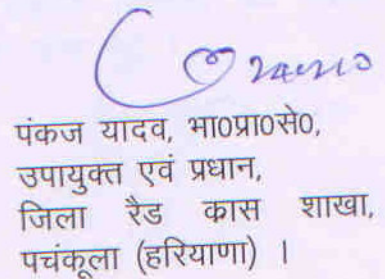 पंकज यादव, भा0प्रा0से0,
उपायुक्त एवं प्रधान,
जिला रैड कास शाखा,
पचंकूला (हरियाणा) ।